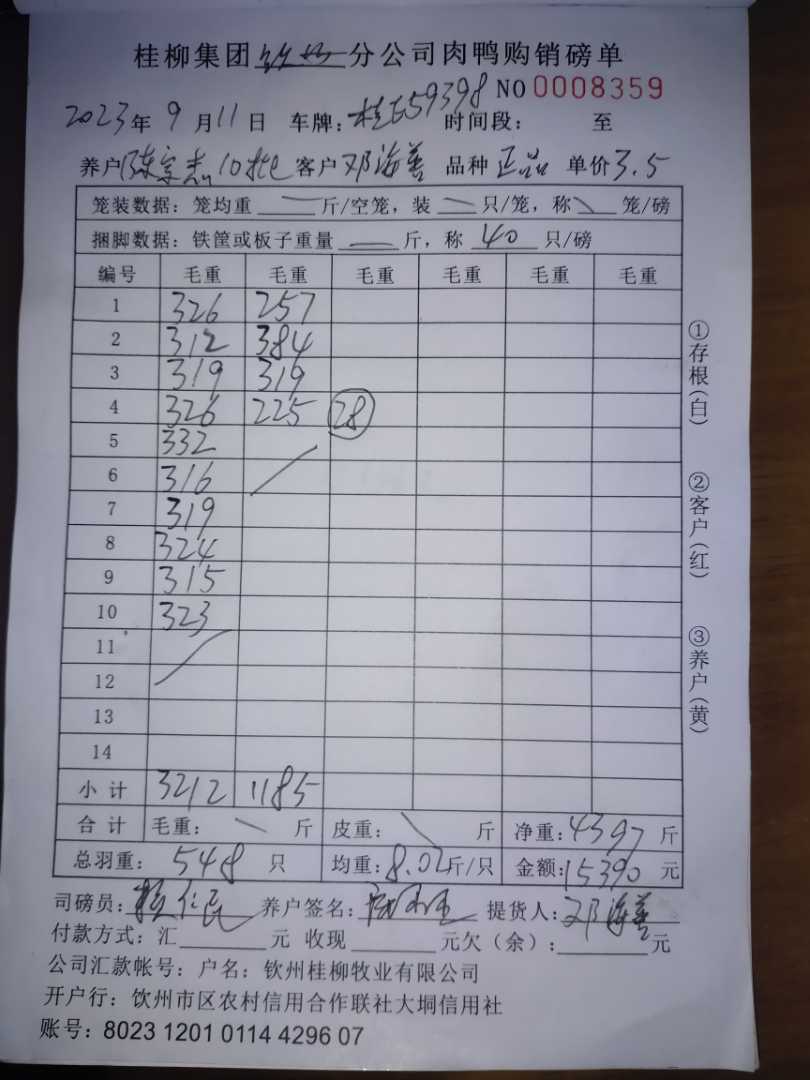 桂柳集团钦州分公司肉鸭购销磅单
NO 0008359
2023年9月11日 车牌：桂E59398 时间段： 至
养户陈宗杰10批 客户邓海善 品种 正品 单价3.5
笼装数据：笼均重 斤/空笼，装 只/笼，称 笼/磅
捆脚数据：铁筐或板子重量 斤，称 40 只/磅
编号 毛重 毛重 毛重 毛重 毛重 毛重
1 326 257
2 312 384
3 319 319
4 326 225 28
5 332
6 316
7 319
8 324
9 315
10 323
11
12
13
14
小计 3212 1185
合计 毛重： 斤 皮重： 斤 净重：4397 斤
总羽重： 548 只 均重：8.02斤/只 金额：15390 元
司磅员： 养户签名： 提货人：邓海善
付款方式：汇 元 收现 元欠（余）： 元
公司汇款帐号：户名：钦州桂柳牧业有限公司
开户行：饮州市区农村信用合作联社大垌信用社
账号：8023 1201 0114 4296 07
①存根（白）
②客户（红）
③养户（黄）